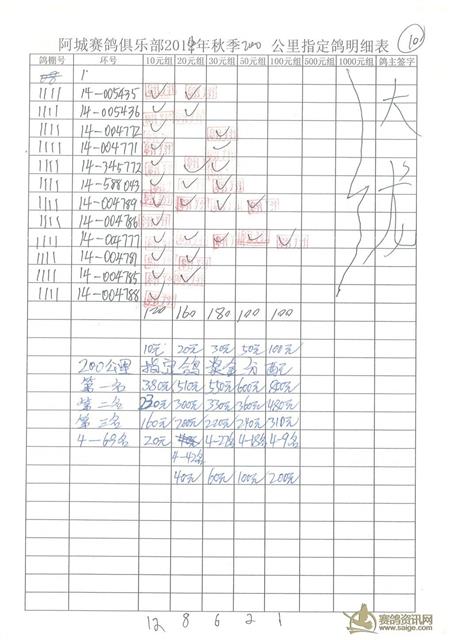 阿城赛鸽俱乐部2014年秋季200公里指定鸽明细表 10
鸽棚号 环号 10元组 20元组 30元组 50元组 100元组 500元组 1000元组 鸽主签字
1111 14-005435 ✓ ✓
1111 14-005436 ✓ ✓
1111 14-004772 ✓ ✓
1111 14-004771 ✓ ✓
1111 14-345772 ✓ ✓ ✓
1111 14-588043 ✓ ✓ ✓
1111 14-004789 ✓ ✓ ✓ ✓
1111 14-004786 ✓
1111 14-004777 ✓ ✓ ✓ ✓ ✓
1111 14-004781 ✓ ✓
1111 14-004785 ✓ ✓
1111 14-004788 ✓
大龙
120 160 180 100 100
10元 20元 30元 50元 100元
200公里 指定鸽奖金分配元
第一名 380元 510元 550元 600元 800元
第二名 230元 300元 330元 360元 480元
第三名 160元 200元 220元 240元 310元
4-69名 20元 4-27名 4-18名 4-9名
4-42名
40元 60元 100元 200元
12 8 6 2 1
赛鸽资讯网
www.saige.com